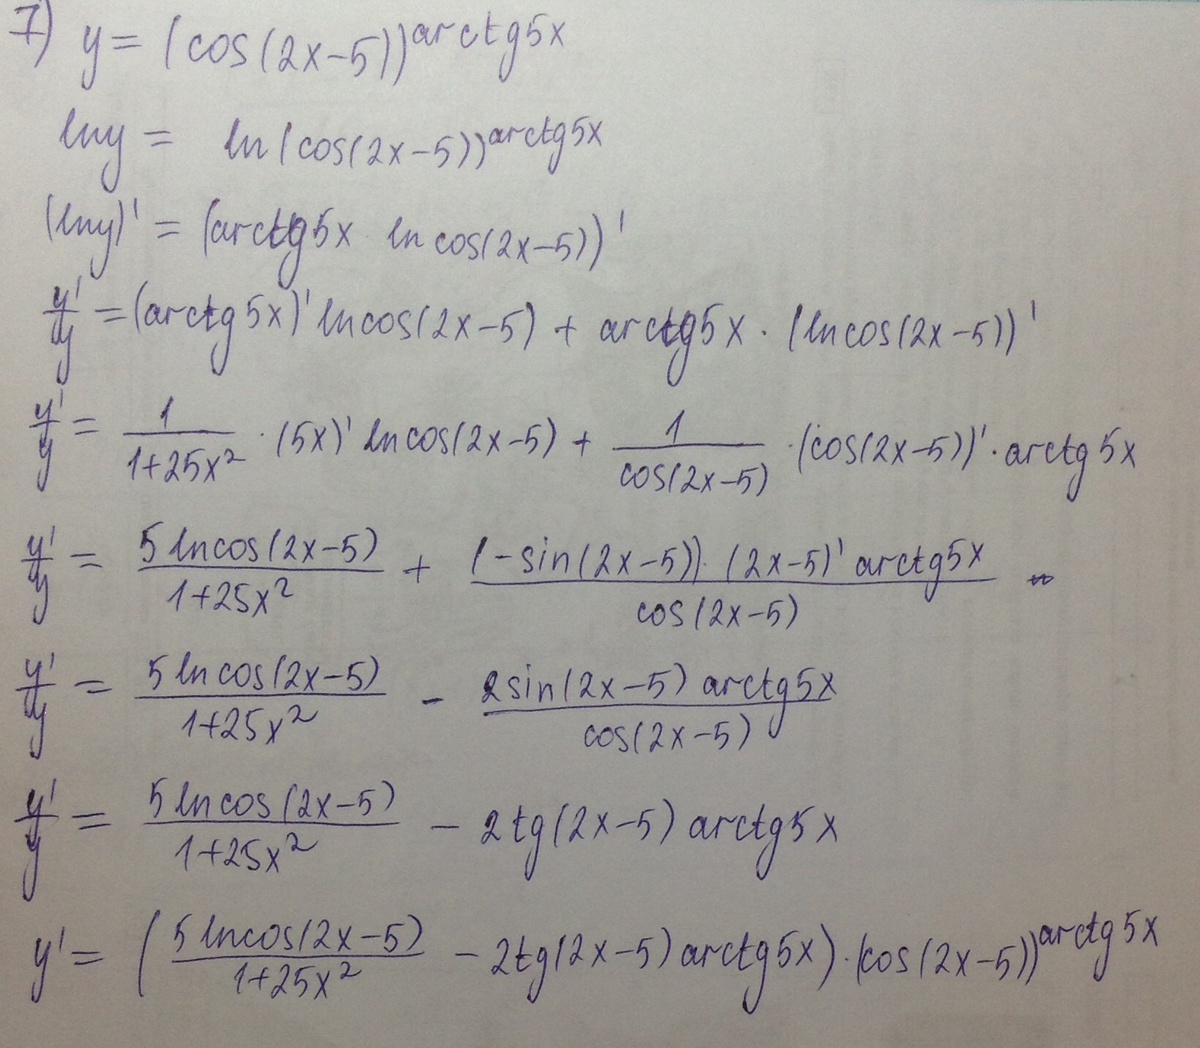 7) y = (cos(2x-5))^arctg5x
lny = ln(cos(2x-5))^arctg5x
(lny)' = (arctg5x ln cos(2x-5))'
y'/y = (arctg5x)' ln cos(2x-5) + arctg5x · (ln cos(2x-5))'
y'/y = 1/(1+25x²) · (5x)' ln cos(2x-5) + 1/cos(2x-5) · (cos(2x-5))' · arctg5x
y'/y = 5 ln cos(2x-5)/(1+25x²) + (-sin(2x-5)) · (2x-5)' arctg5x/cos(2x-5)
y'/y = 5 ln cos(2x-5)/(1+25x²) - 2sin(2x-5) arctg5x/cos(2x-5)
y'/y = 5 ln cos(2x-5)/(1+25x²) - 2tg(2x-5) arctg5x
y' = (5 ln cos(2x-5)/(1+25x²) - 2tg(2x-5) arctg5x) · (cos(2x-5))^arctg5x